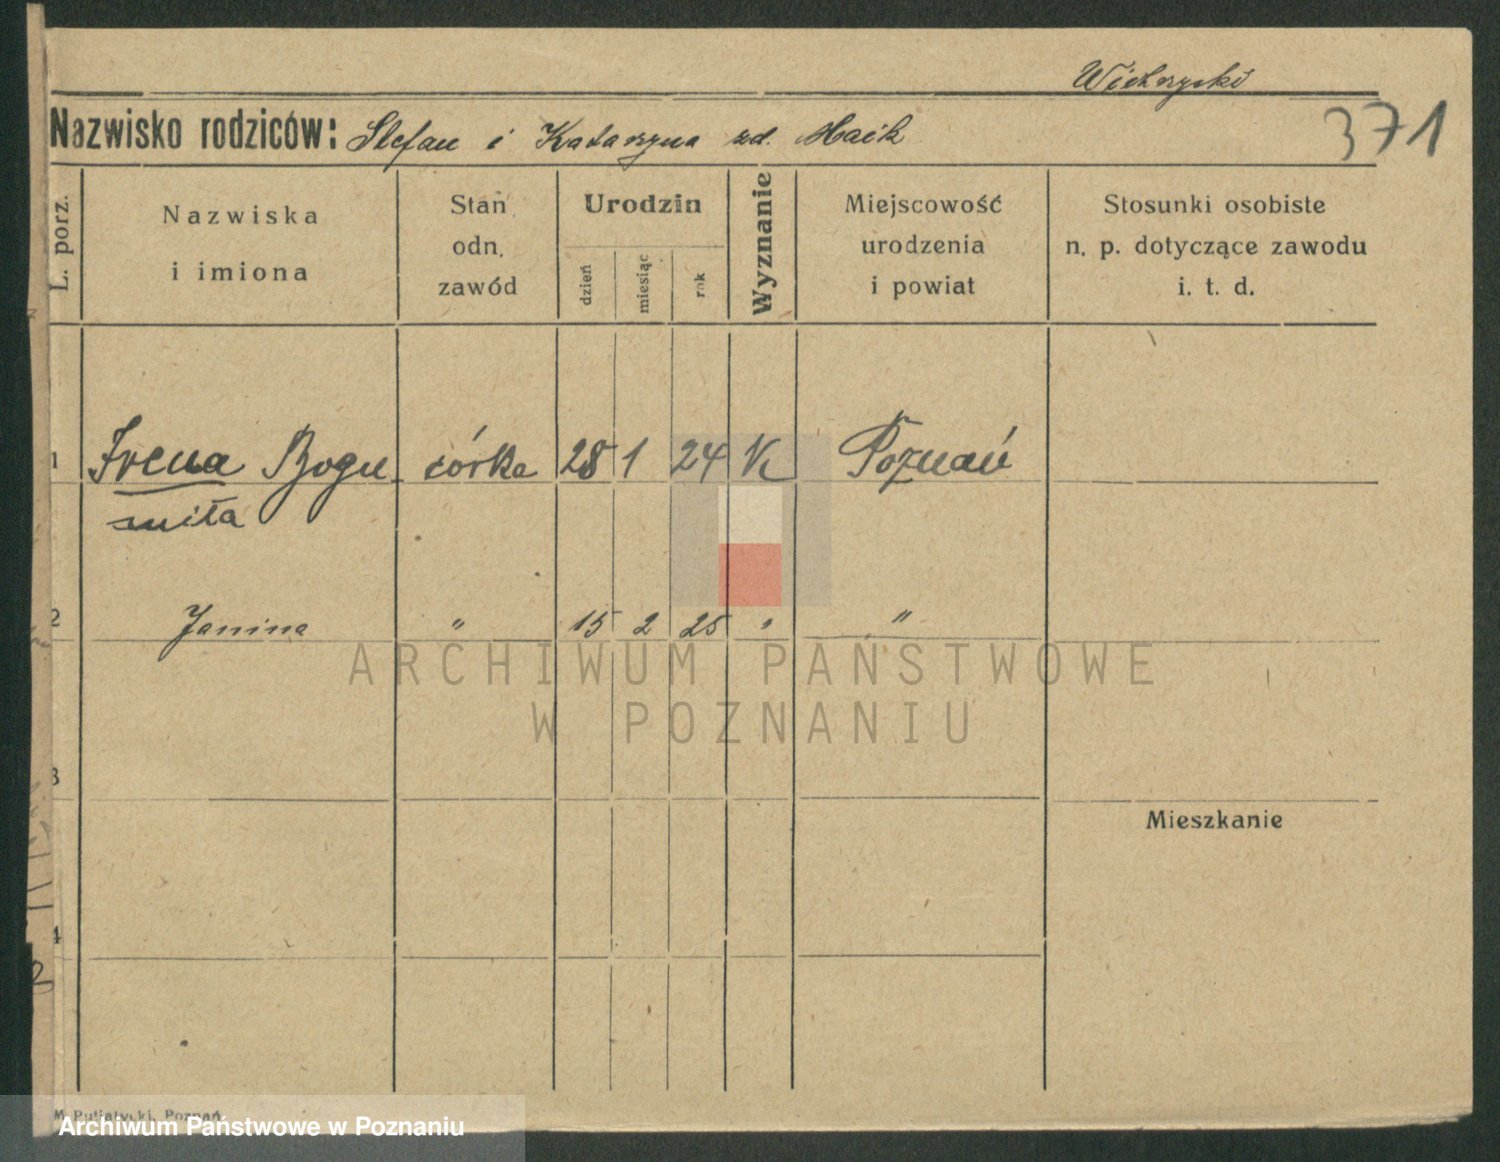 Wichrzycki
Nazwisko rodziców: Stefan i Katarzyna zd. Maik
371
L. porz.
Nazwiska
i imiona
Stan
odn.
zawód
Urodzin
dzień
miesiąc
rok
Wyznanie
Miejscowość
urodzenia
i powiat
Stosunki osobiste
n. p. dotyczące zawodu
i. t. d.
1 Irena Bogu córka 28 1 24 K Poznań
miła
2 Janina " 15 2 25 " "
3
Mieszkanie
4
ARCHIWUM PAŃSTWOWE
W POZNANIU
M. Putiatycki, Poznań
Archiwum Państwowe w Poznaniu